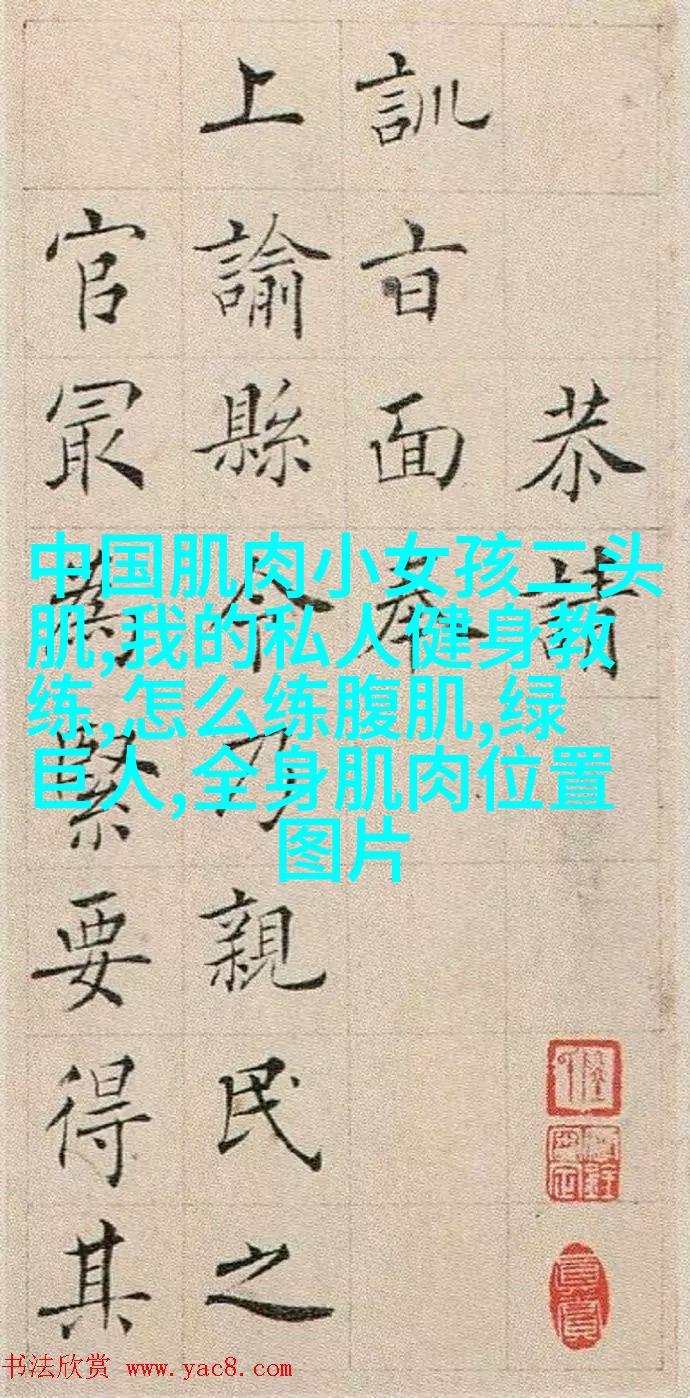 恭請
訓旨面奉
上諭縣令乃親民之
官冣為緊要得其
中国肌肉小女孩二头
肌,我的私人健身教
练,怎么练腹肌,绿
巨人,全身肌肉位置
图片
书法欣赏 www.yac8.com